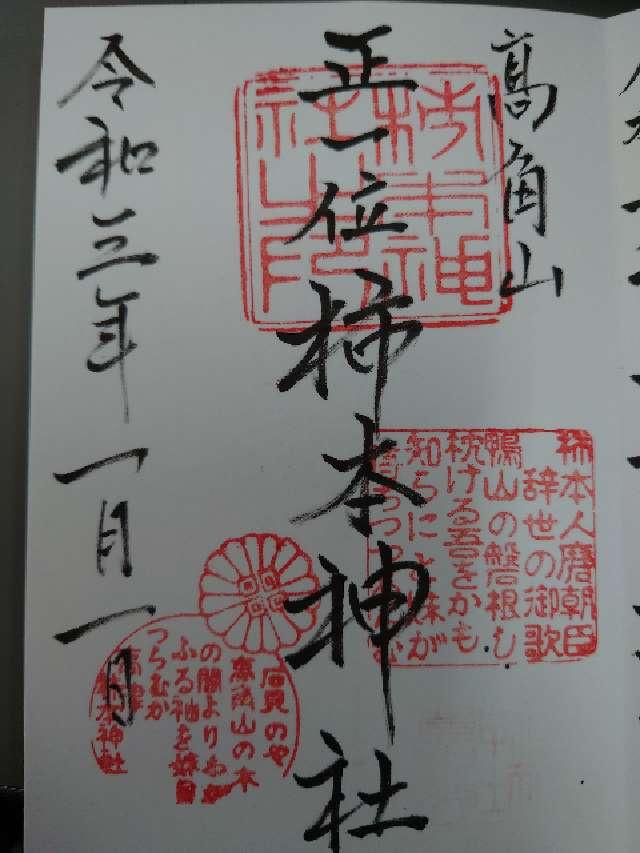 高角山
正一位 柿本神社
令和三年一月一日
柿本神社
柿本人麿朝臣
辞世の御歌
鴨山の磐根し
枕ける吾をかも
知らにと妹が
石見のや
高角山の木
の間よりわが
ふる袖を妹見
つらむか
柿本神社